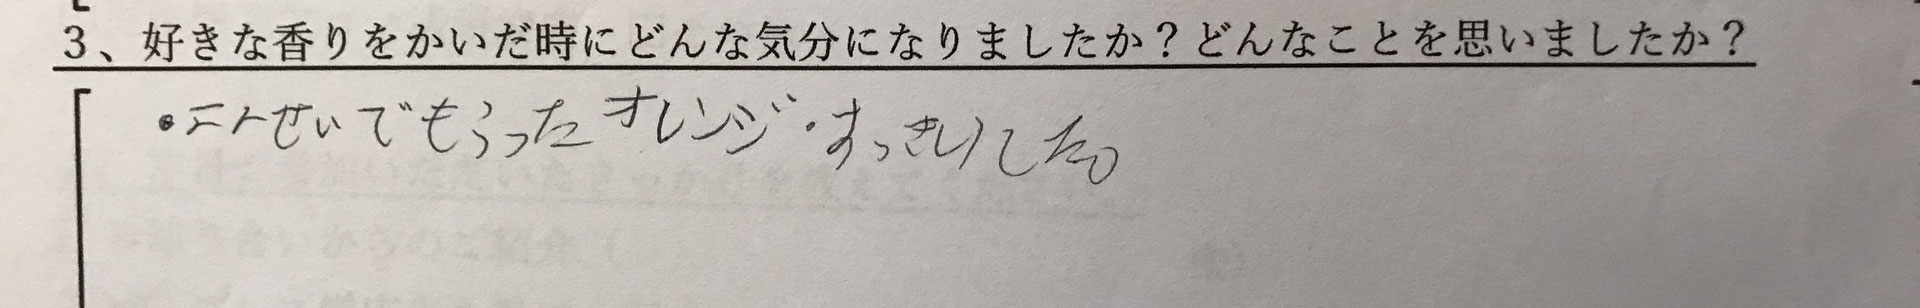 3、好きな香りをかいだ時にどんな気分になりましたか？どんなことを思いましたか？
でもらったオレンジ・すっきりした。